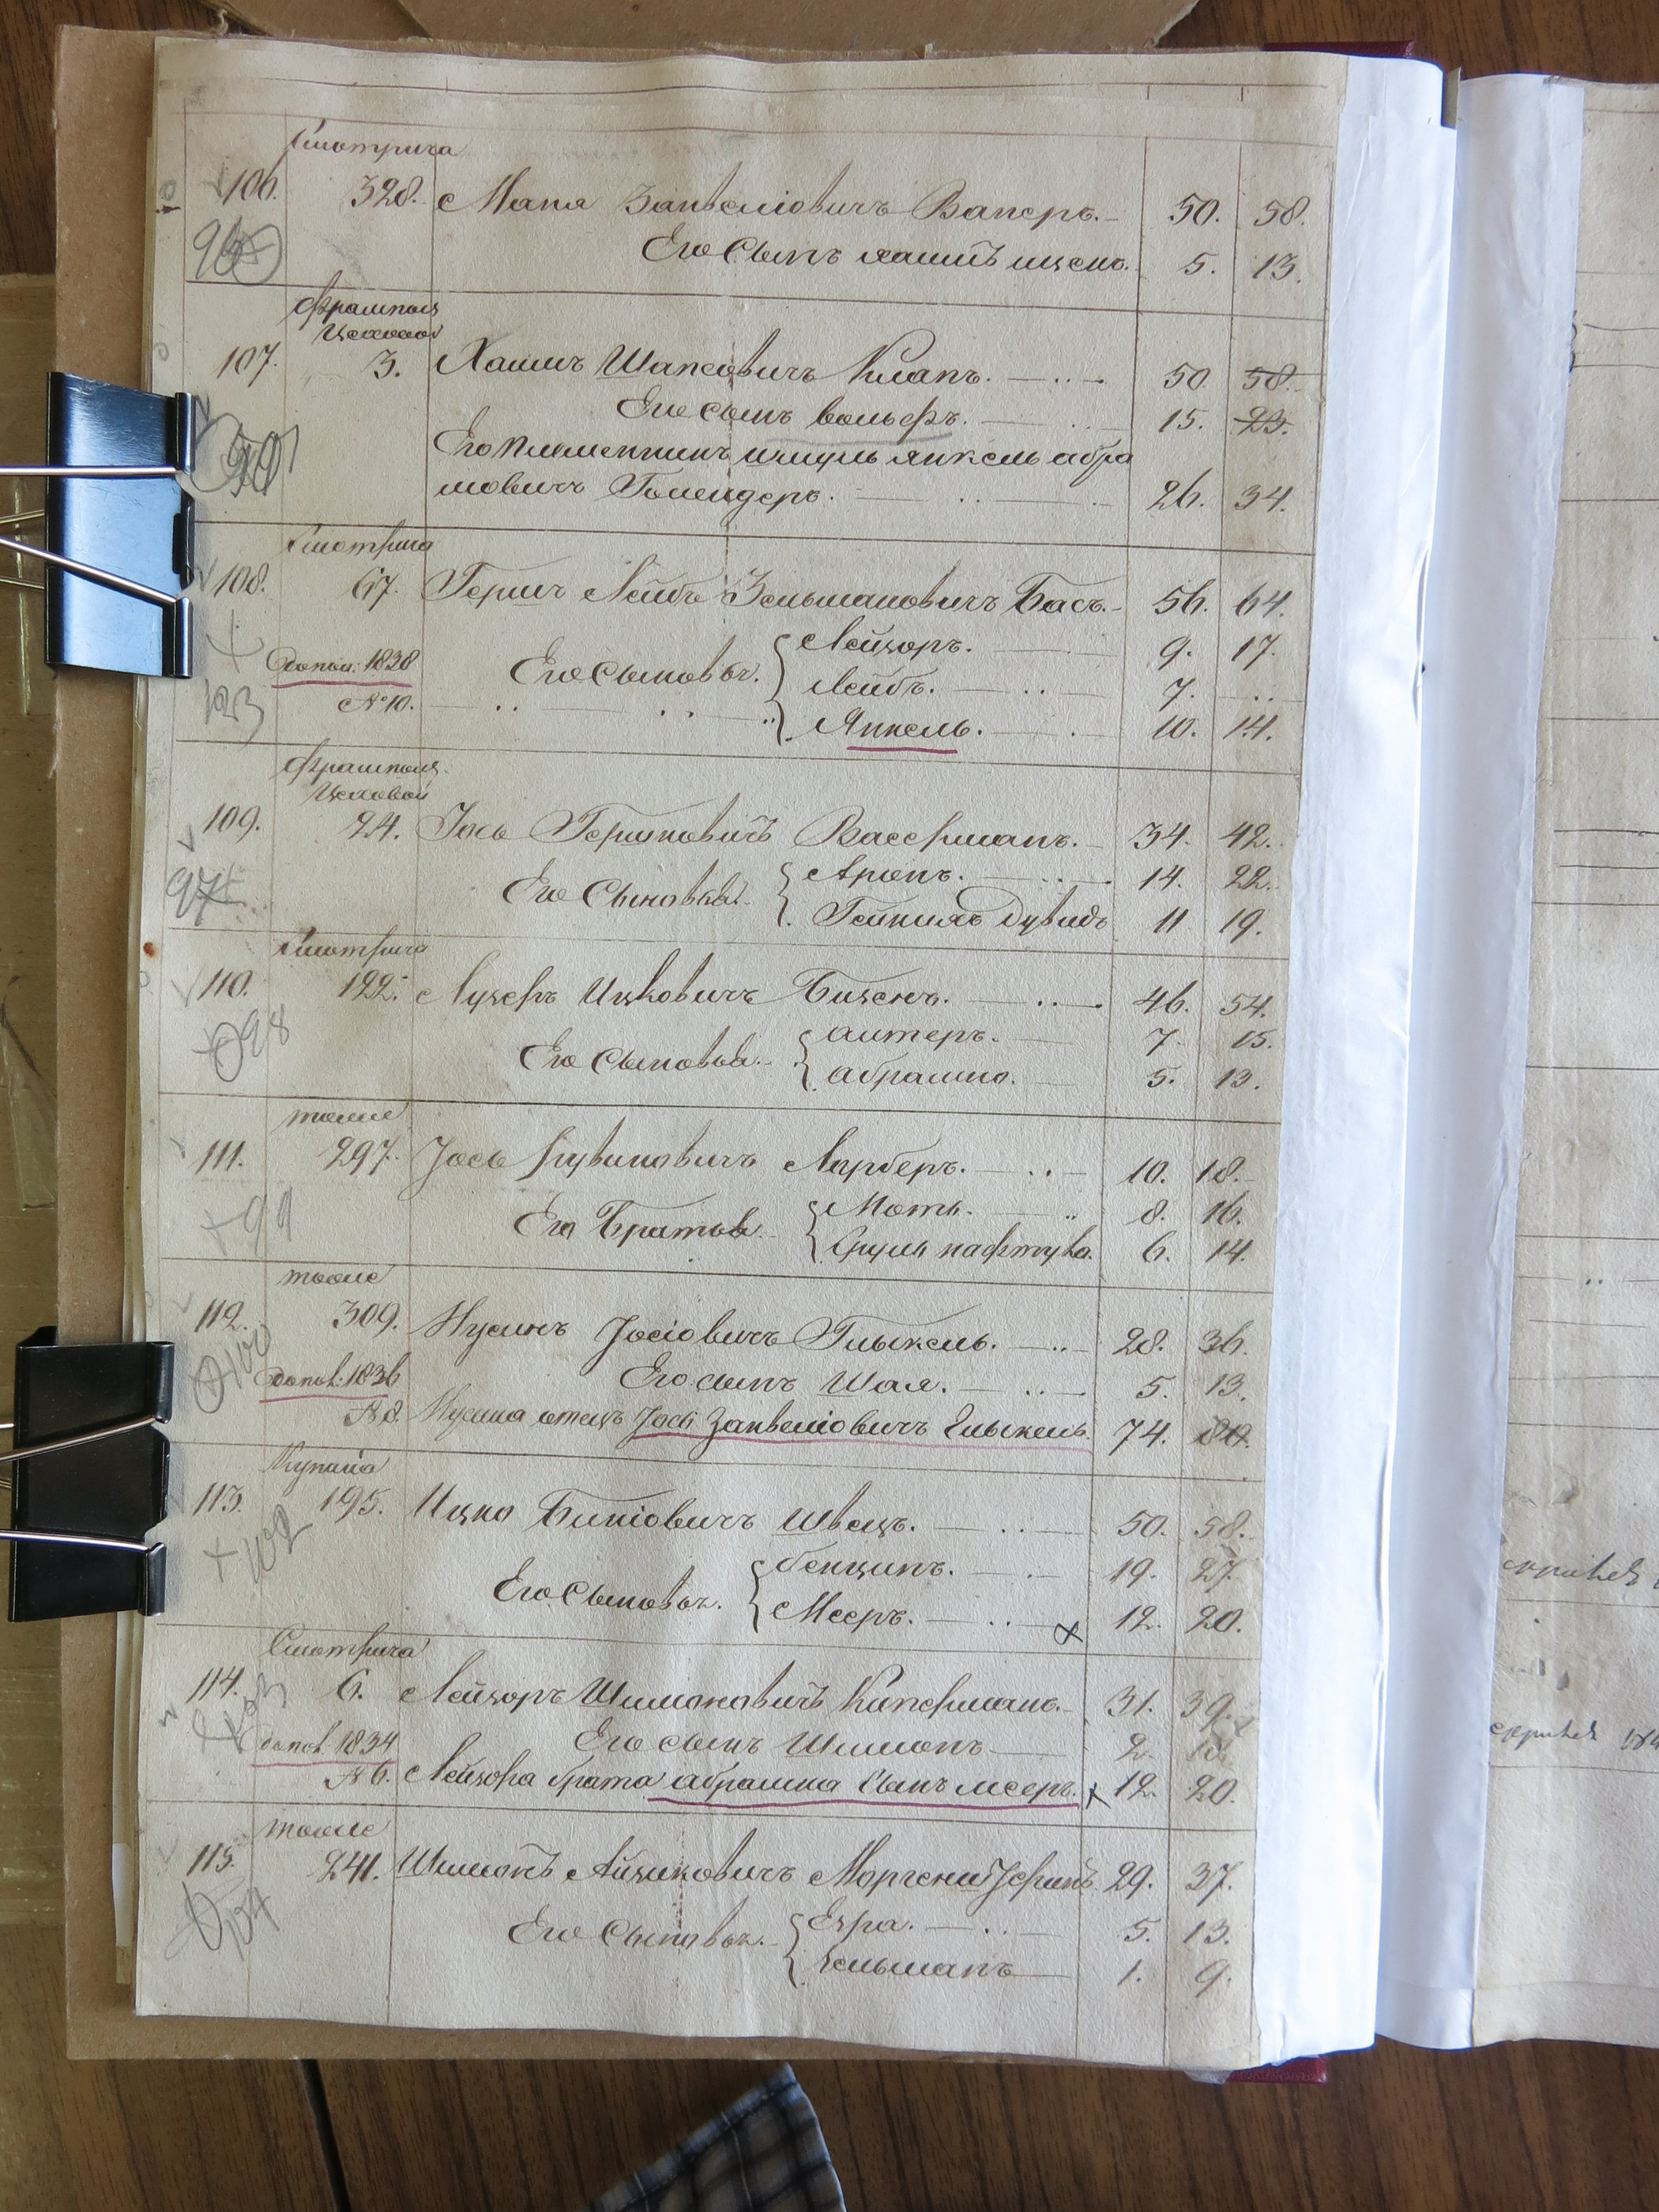 Смотрича
106. 328. Маня Занвеліовичъ Ваперъ. 50. 58.
96
Его Сынъ хаимъ ицекъ. 5. 13.
Фрампол
Цеховой
107. 3. Хаимъ Шапсовичъ Клапъ. 50. 58.
Его сынъ вольфъ. 15. 23.
Его Племенникъ шмуль янкель абра
мовичъ Голендеръ. 26. 34.
Смотрича
108. 67. Гершъ Лейбъ Зельмановичъ Басъ. 56. 64.
Лейзоръ. 9. 17.
допол: 1838 Его Сыновья. Лейбъ. 7. ..
123 №10. Янкель. 10. 14.
Фрампол.
Цеховой
109. 24. Іось Гершковичъ Вассерманъ. 34. 42.
Аронъ. 14. 22.
97 Его Сыновья. Гейнихъ Дувидъ 11 19.
Смотрича
110. 122. Лузеръ Ицковичъ Бизекъ. 46. 54.
98 алтеръ. 7. 15.
Его Сыновья. абрамко. 5. 13.
тоже
111. 297. Іось Рувиновичъ Лерберъ. 10. 18.
99 Моть. 8. 16.
Его Братья. Сруль нафтула. 6. 14.
тоже
112. 309. Нусинъ Іосіовичъ Глыкель. 28. 36.
100
допол: 1836 Его сынъ Шая. 5. 13.
№8. Нусина отецъ Іось Занвеліовичъ Глыкель. 74. 80.
Купина
113. 195. Ицко Биніовичъ Швецъ. 50. 58.
102 бенционъ. 19. 27.
Его Сыновья. Мееръ. 12. 20.
Смотрича
114. 6. Лейзоръ Шимоновичъ Киперманъ. 31. 39.
103
допол. 1834 Его сынъ Шимонъ 2. 10.
№6. Лейзора брата абрамка Сынъ мееръ. 12. 20.
тоже
115. 241. Шимонъ Айзиковичъ 29. 37.
104 Езра. 5. 13.
Его Сыновья. Зельманъ 1. 9.